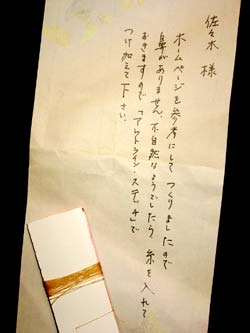 佐々木 様
ホームページを参考にして つくりましたので
鼻がありません。不自然なようでしたら 糸を入れて
おきますので「アウトライン・ステッチ」で
つけ加えて下さい。